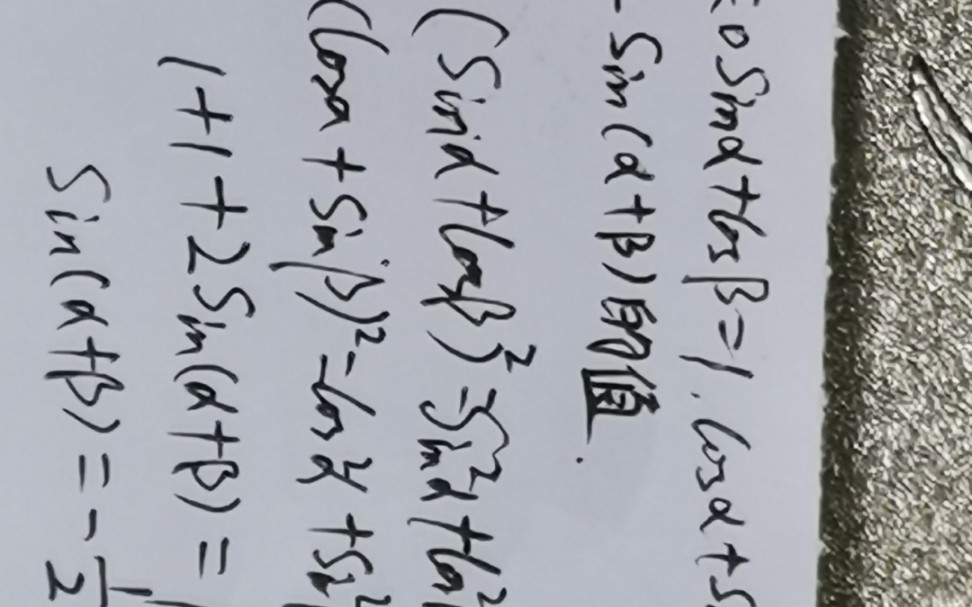 sinα+cosβ=1. cosα+s
sin(α+β)的值.
(sinα+cosβ)²=sin²α+cos²
(cosα+sinβ)²=cos²α+sin²
1+1+2sin(α+β)=
sin(α+β)=-1/2